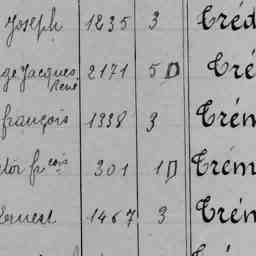 Joseph 1235 3 Tréd
ge Jacques 2171 5 D Tré
René
françois 1338 3 Trém
301 1 D Trém
Ernest 1467 3 Trém